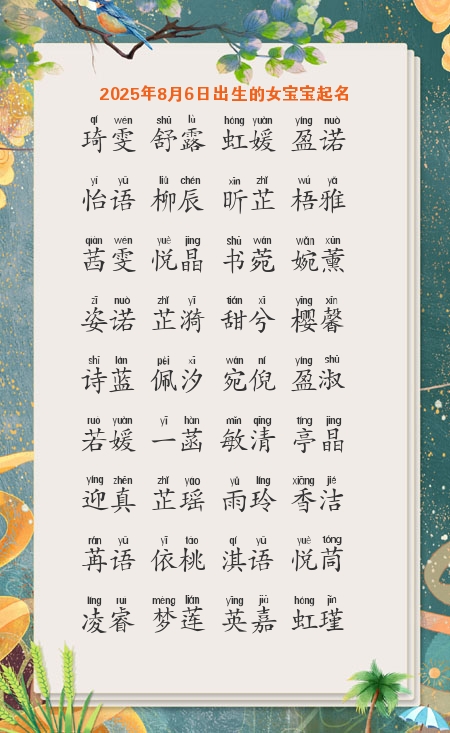 2025年8月6日出生的女宝宝起名
qí wén shū lù hóng yuàn yíng nuò
琦雯 舒露 虹媛 盈诺
yí yǔ liǔ chén xīn zhǐ wú yǎ
怡语 柳辰 昕芷 梧雅
qiàn wén yuè jīng shū wǎn wǎn xūn
茜雯 悦晶 书菀 婉薰
zī nuò zhǐ yī tián xī yīng xīn
姿诺 芷漪 甜兮 樱馨
shī lán pèi xī wǎn ní yíng shū
诗蓝 佩汐 宛倪 盈淑
ruò yuàn yī hàn mǐn qīng tíng jīng
若媛 一菡 敏清 亭晶
yíng zhēn zhǐ yáo yǔ líng xiāng jié
迎真 芷瑶 雨玲 香洁
rǎn yǔ yī táo qí yǔ yuè tóng
苒语 依桃 淇语 悦茼
líng ruì mèng lián yīng jiā hóng jǐn
凌睿 梦莲 英嘉 虹瑾